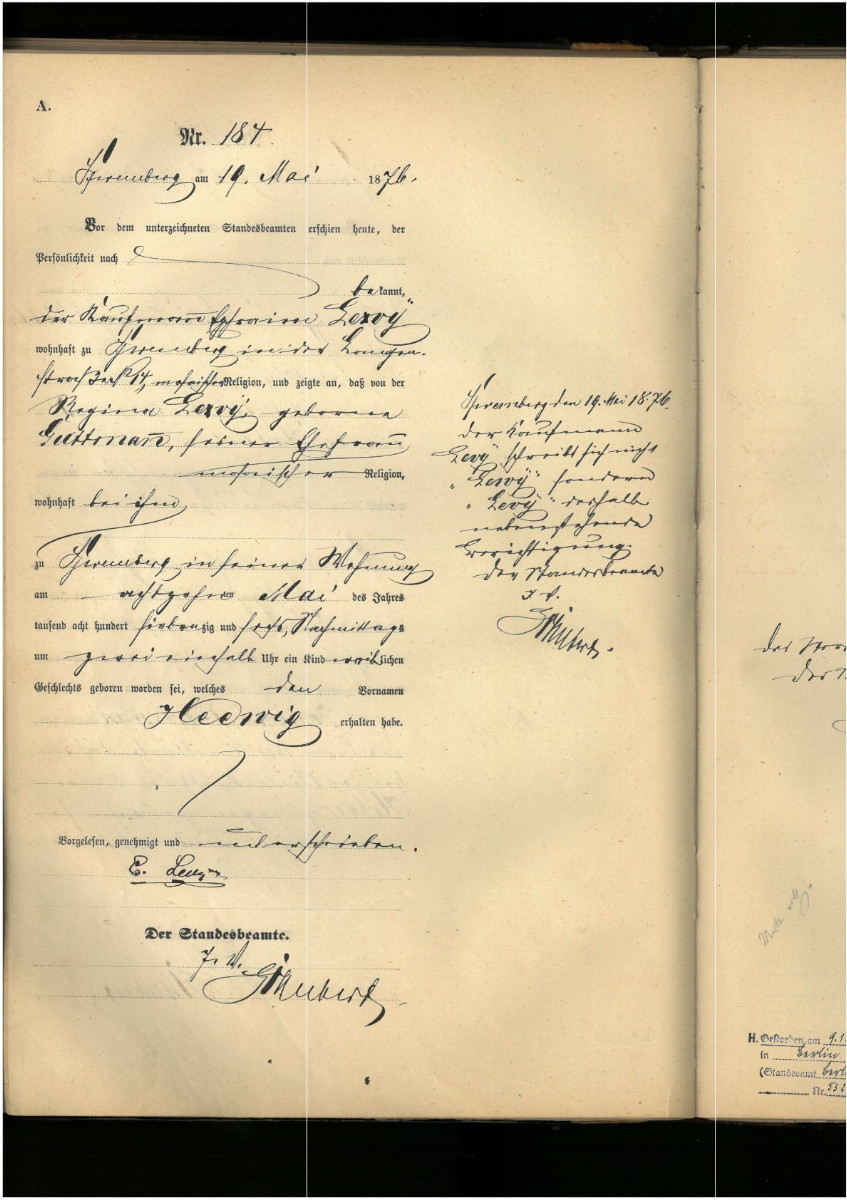 A.
Nr. 184.
Spremberg am 19. Mai 1876.
Vor dem unterzeichneten Standesbeamten erschien heute, der
Persönlichkeit nach
bekannt,
der Kaufmann Ephraim Lewy
wohnhaft zu Spremberg in der Langen-
straße No 14, mosaischer Religion, und zeigte an, daß von der
Regina Lewy, geborne
Guttmann, seiner Ehefrau
mosaischer Religion,
wohnhaft bei ihm
zu Spremberg in seiner Wohnung
am achtzehn Mai des Jahres
tausend acht hundert siebenzig und sechs Nachmittags
um zwei einhalb Uhr ein Kind weiblichen
Geschlechts geboren worden sei, welches den Vornamen
Hedwig erhalten habe.
Vorgelesen, genehmigt und unterschrieben.
E. Levy
Der Standesbeamte.
J. V.
Spremberg den 19. Mai 1876.
der Kaufmann
Levÿ schreibt sich nicht
„Lewÿ“ sondern
„Levÿ“ deshalb
nebenstehende
Berichtigung.
der Standesbeamte
J. V.
H. Gestorben am 9.1
in Berlin
(Standesamt Berl
Nr. 532